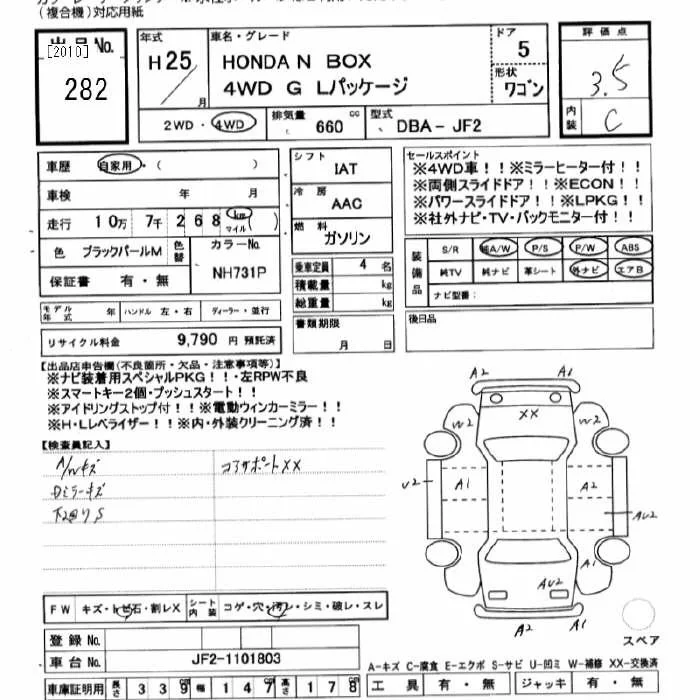 (複合機)対応用紙
出品No.
[2010]
282
年式
H25/月
車名・グレード
HONDA N BOX
4WD G Lパッケージ
ドア
5
形状
ワゴン
2WD・4WD
排気量 660 cc
型式 DBA-JF2
評価点
3.5
内装
C
車歴 自家用・( )
車検 年 月
走行 10万 7千 268 km マイル ( )
色 ブラックパールM
色替
カラーNo.
NH731P
保証書 有・無
シフト
IAT
冷房
AAC
燃料
ガソリン
乗車定員 4 名
積載量 kg
総重量 kg
セールスポイント
※4WD車!!※ミラーヒーター付!!
※両側スライドドア!!※ECON!!
※パワースライドドア!!※LPKG!!
※社外ナビ・TV・バックモニター付!!
装備品
S/R 純A/W P/S P/W ABS
純TV 純ナビ 革シート 外ナビ エアB
ナビ型番:
モデル年式 年 ハンドル 左・右 ディーラー・並行
リサイクル料金 9,790 円 預託済
書類期限
月 日
後日品
【出品店申告欄(不良箇所・欠品・注意事項等)】
※ナビ装着用スペシャルPKG!!・左RPW不良
※スマートキー2個・プッシュスタート!!
※アイドリングストップ付!!※電動ウィンカーミラー!!
※H・Lレベライザー!!※内・外装クリーニング済!!
【検査員記入】
A/Wキズ
コアサポートXX
Dミラーキズ
下回りS
A2 A1
XX
W2 A2
V2 A1 A2
AU2
A1
AU2
A2 A1
スペア
FW キズ・トビ石・割レX
シート内装 コゲ・穴・汚レ・シミ・破レ・スレ
登録No.
車台No. JF2-1101803
A-キズ C-腐食 E-エクボ S-サビ U-凹ミ W-補修 XX-交換済
車庫証明用 長さ 339 cm 幅 147 cm 高さ 178 cm
工具 有・無 ジャッキ 有・無